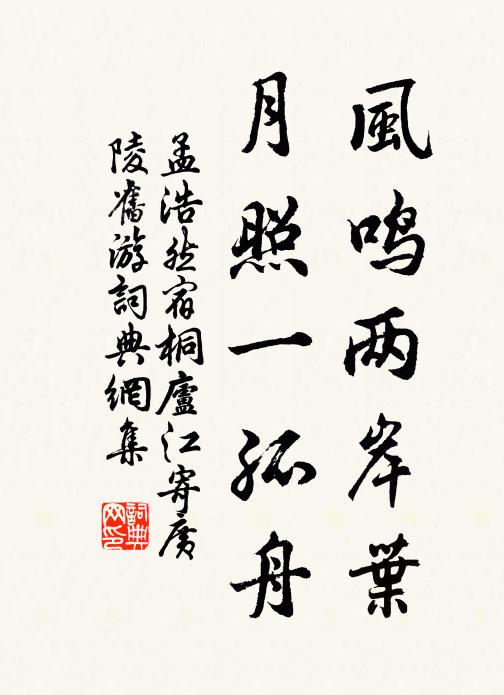 風鳴两岸葉
月照一孤舟
孟浩然宿桐廬江寄廣
陵舊游詞典網集
詞典
网印